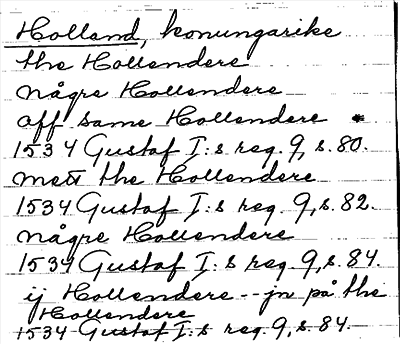 Holland, konungarike
the Hollendere
någre Hollendere
off same Hollendere
1534 Gustaf I:s reg. 9, s. 80.
mett the Hollendere
1534 Gustaf I:s reg. 9, s. 82.
någre Hollendere
1534 Gustaf I:s reg. 9, s. 84.
ij Hollendere -- jn på the
Hollendere
1534 Gustaf I:s reg. 9, s. 84.